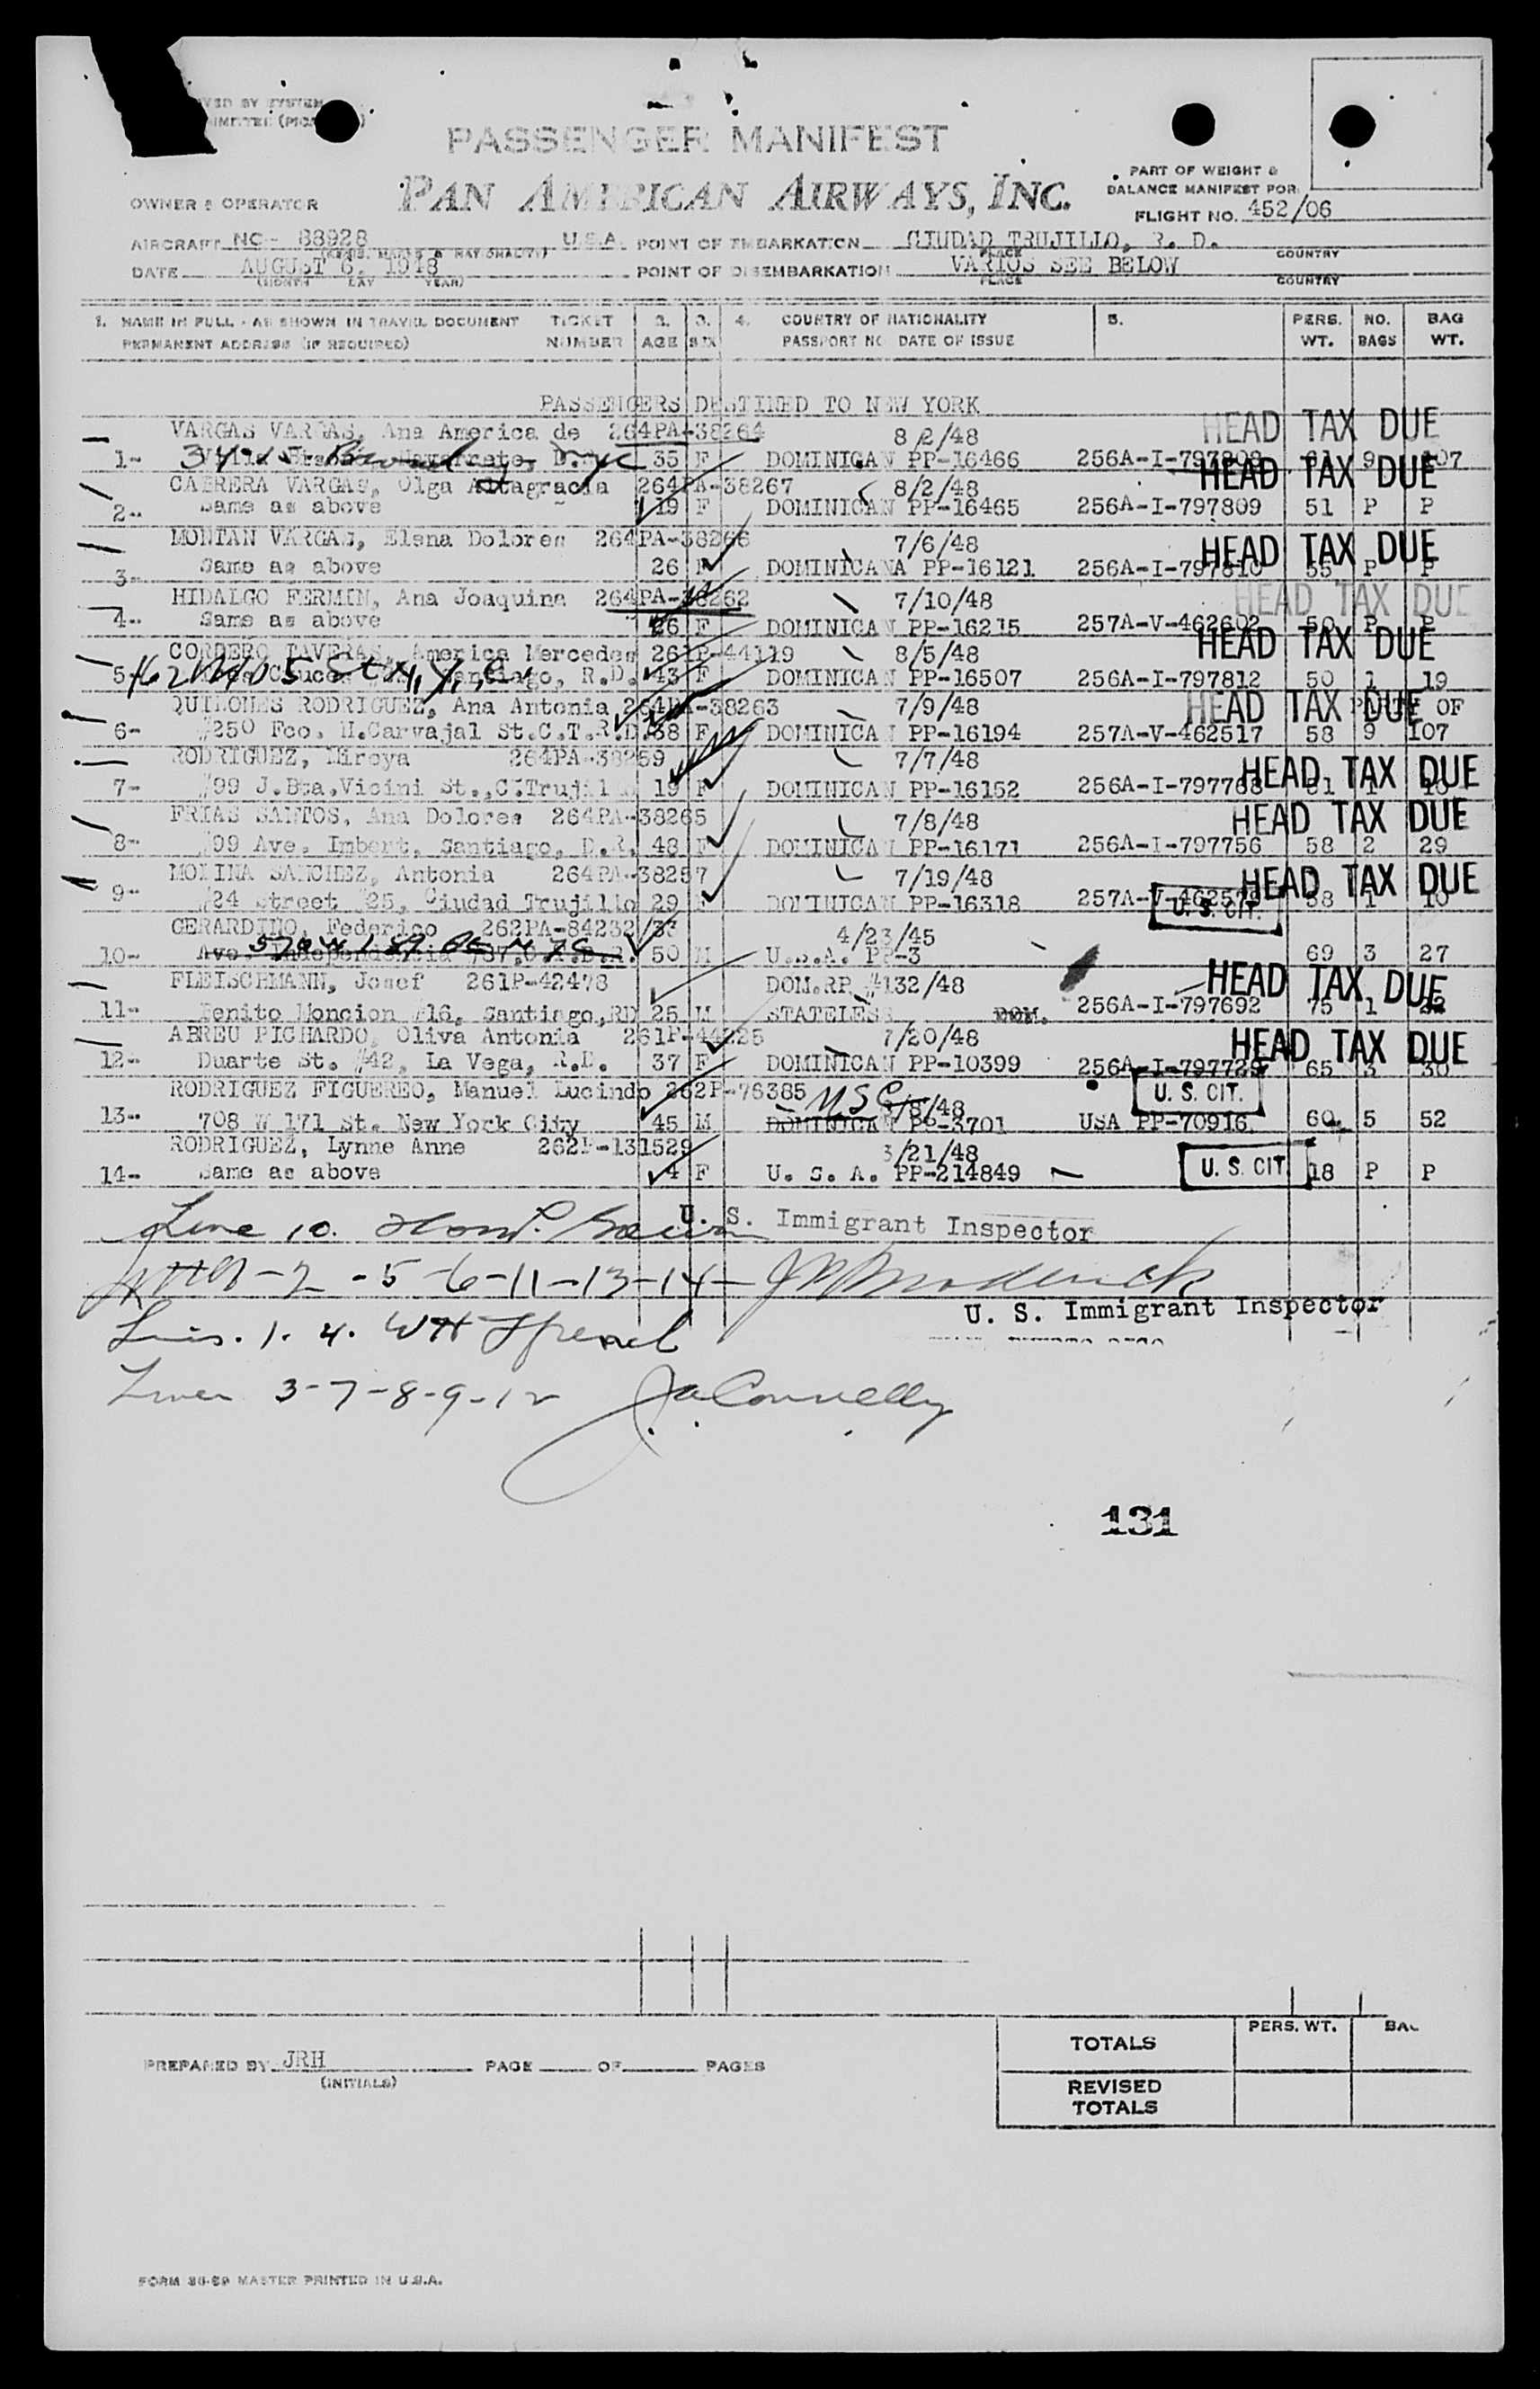 PASSENGER MANIFEST
PAN AMERICAN AIRWAYS, INC.
PART OF WEIGHT &
BALANCE MANIFEST FOR
OWNER & OPERATOR
FLIGHT NO. 452/06
AIRCRAFT NC- 88928 U.S.A. POINT OF EMBARKATION CIUDAD TRUJILLO, R. D.
PLACE COUNTRY
DATE AUGUST 6, 1948 POINT OF DISEMBARKATION VARIOS SEE BELOW
(MONTH DAY YEAR) PLACE COUNTRY
1. NAME IN FULL - AS SHOWN IN TRAVEL DOCUMENT TICKET 2. 3. 4. COUNTRY OF NATIONALITY 5. PERS. NO. BAG
PERMANENT ADDRESS (IF REQUIRED) NUMBER AGE SEX PASSPORT NO DATE OF ISSUE WT. BAGS WT.
PASSENGERS DESTINED TO NEW YORK
VARGAS VARGAS, Ana America de 264PA-38264 8/2/48 HEAD TAX DUE
1- 35 F DOMINICAN PP-16466 9 107
CABRERA VARGAS, Olga Altagracia 264PA-38267 8/2/48 HEAD TAX DUE
2- Same as above 19 F DOMINICAN PP-16465 256A-I-797809 51 P P
MONTAN VARGAS, Elena Dolores 264PA-38266 7/6/48 HEAD TAX DUE
3- Same as above 26 F DOMINICANA PP-16121 256A-I-797810 55 P P
HIDALGO FERMIN, Ana Joaquina 264PA-38262 7/10/48 HEAD TAX DUE
4- Same as above 26 F DOMINICAN PP-16215 257A-V-462602 50 P P
CORDERO TAVERAS, America Mercedes 261P-44119 8/5/48 HEAD TAX DUE
5- Santiago, R.D. 43 F DOMINICAN PP-16507 256A-I-797812 50 1 19
QUILONES RODRIGUEZ, Ana Antonia 264PA-38263 7/9/48 HEAD TAX DUE PARTY OF
6- #250 Fco. H.Carvajal St.C.T.R.D. 38 F DOMINICAN PP-16194 257A-V-462517 58 9 107
RODRIGUEZ, Mireya 264PA-38259 7/7/48
7- #99 J.Bta.Vicini St.,C.Trujillo 19 F DOMINICAN PP-16152 HEAD TAX DUE
FRIAS SANTOS, Ana Dolores 264PA-38265 7/8/48 HEAD TAX DUE
8- #99 Ave. Imbert, Santiago, D.R. 48 F DOMINICAN PP-16171 256A-I-797756 58 2 29
MOLINA SANCHEZ, Antonia 264PA-38257 7/19/48 HEAD TAX DUE
9- #24 Street #25, Ciudad Trujillo 29 F DOMINICAN PP-16318 1 10
U. S. CIT.
GERARDINO, Federico 262PA-84232/33 4/23/45
10- 50 M U.S.A. PP-3 69 3 27
FLEISCHMANN, Josef 261P-42478 DOM.RP #132/48 HEAD TAX DUE
11- Benito Moncion #16, Santiago,RD 25 M STATELESS DOM. 256A-I-797692 75 1
ABREU PICHARDO, Oliva Antonia 261P-44225 7/20/48 HEAD TAX DUE
12- Duarte St. #42, La Vega, R.D. 37 F DOMINICAN PP-10399 256A-I-797729 65 3 30
RODRIGUEZ FIGUEREO, Manuel Lucindo 262P-76385 U. S. CIT.
13- 708 W 171 St. New York City 45 M DOMINICAN PP-3701 USA PP-70916 60 5 52
RODRIGUEZ, Lynne Anne 262P-131529 3/21/48
14- Same as above 4 F U. S. A. PP-214849 U. S. CIT. 18 P P
Line 10.
U. S. Immigrant Inspector
-2 -5-6-11-13-14-
U. S. Immigrant Inspector
1. 4.
Lines 3-7-8-9-12 JaConnelly
131
TOTALS PERS. WT.
PREPARED BY JRH PAGE OF PAGES
(INITIALS)
REVISED
TOTALS
FORM MASTER PRINTED IN U.S.A.